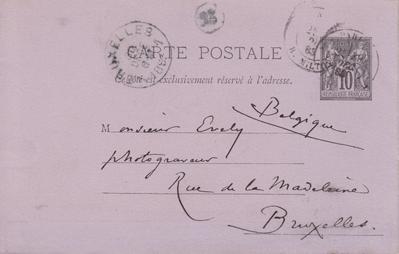 BRUXELLES
CARTE POSTALE
Ce côté est exclusivement réservé à l'adresse.
10
REPUBLIQUE FRANÇAISE
Belgique
Monsieur Evely
photograveur
Rue de la Madeleine
Bruxelles.